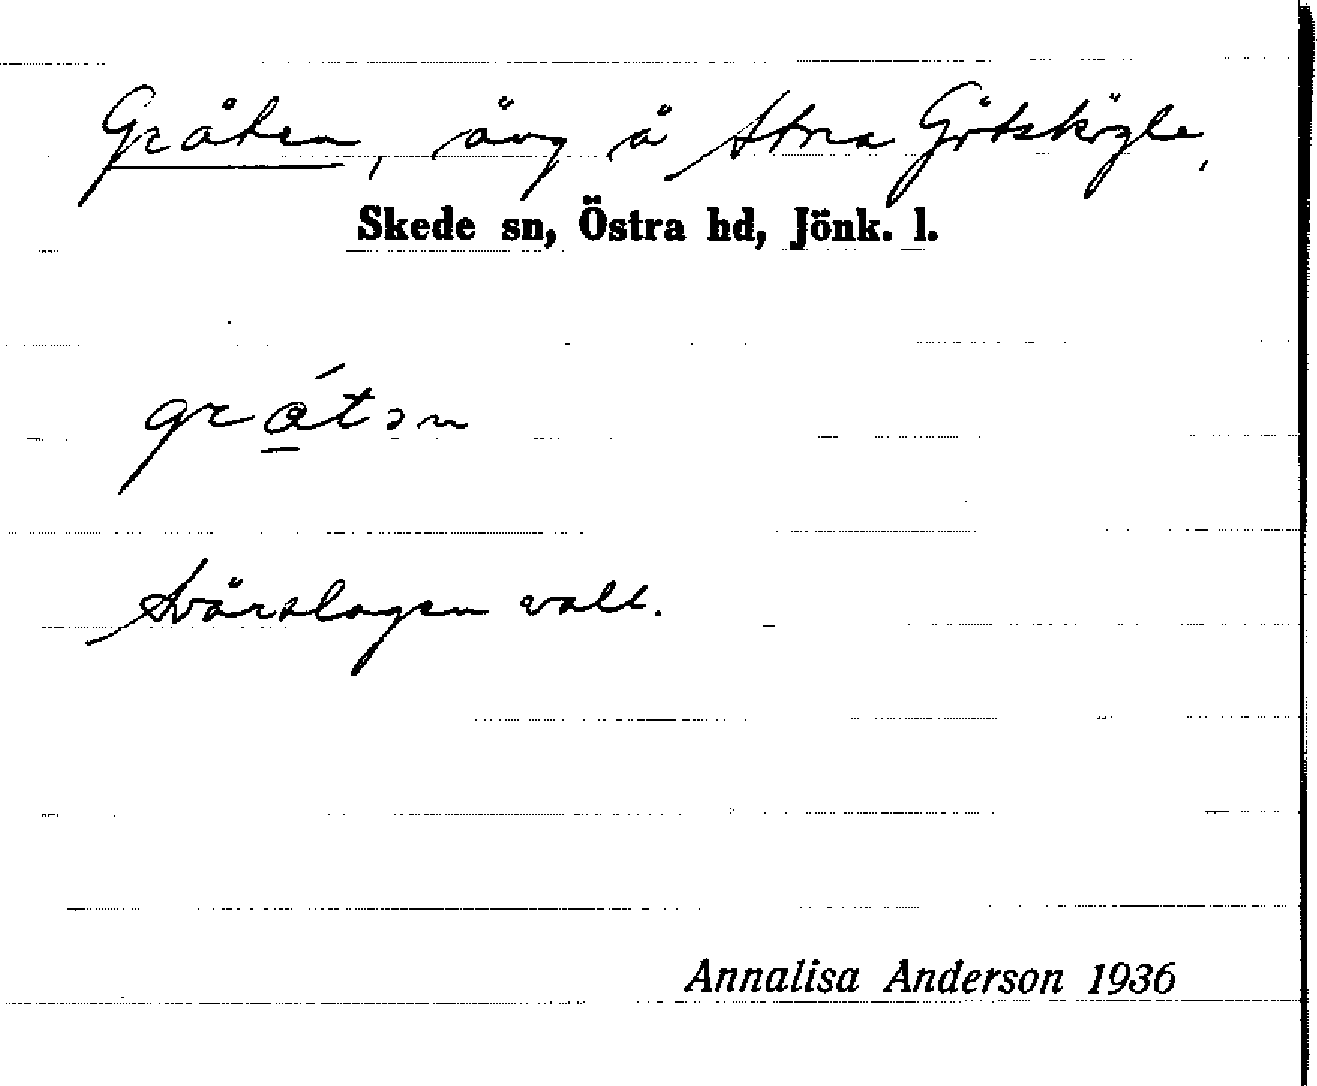 Gråten, äng å Stora Götskögle,
Skede sn, Östra hd, Jönk. l.
grátən
Svårslagen vall.
Annalisa Anderson 1936